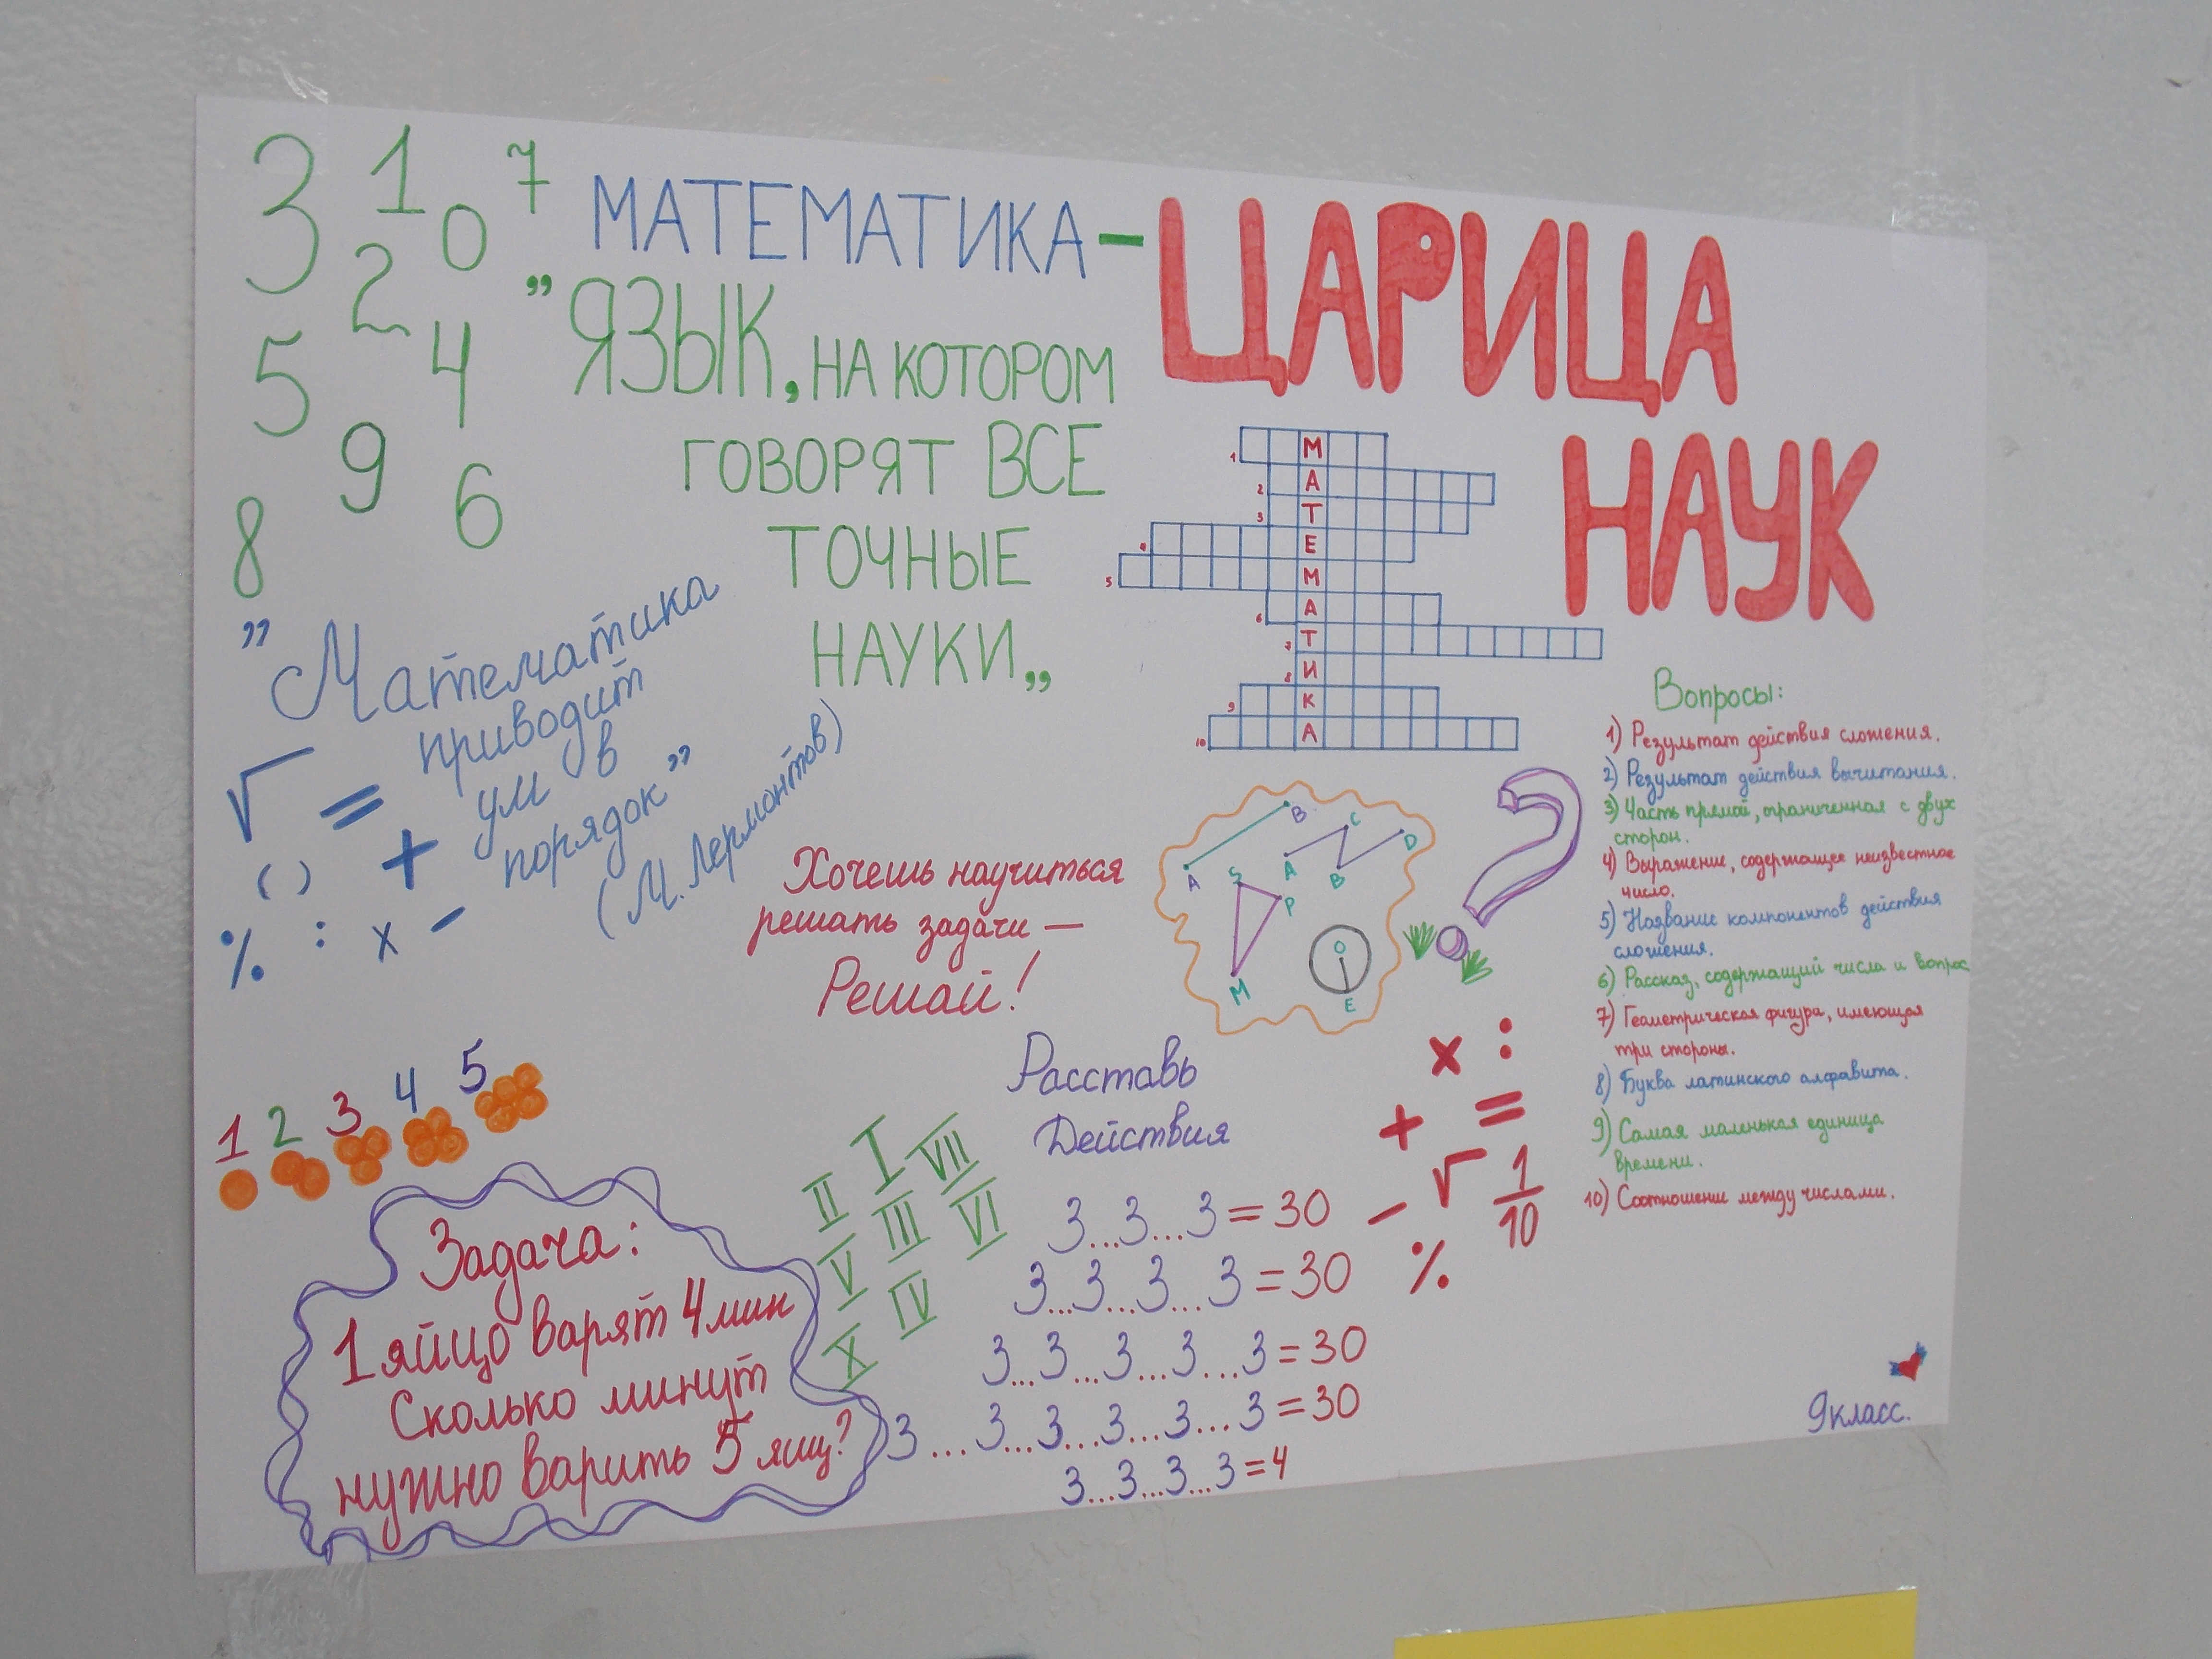 3 1 0 7
2
5 4
9 6
8
МАТЕМАТИКА –
ЦАРИЦА
НАУК
"ЯЗЫК, НА КОТОРОМ
ГОВОРЯТ ВСЕ
ТОЧНЫЕ
НАУКИ„
"Математика
приводит
ум в
порядок"
(М. Лермонтов)
√ =
( ) +
% : x -
1 М
2 А
3 Т
4 Е
5 М
6 А
7 Т
8 И
9 К
10 А
Вопросы:
1) Результат действия сложения.
2) Результат действия вычитания.
3) Часть прямой, ограниченная с двух
сторон.
4) Выражение, содержащее неизвестное
число.
5) Название компонентов действия
сложения.
6) Рассказ, содержащий числа и вопрос
7) Геометрическая фигура, имеющая
три стороны.
8) Буква латинского алфавита.
9) Самая маленькая единица
времени.
10) Соотношение между числами.
Хочешь научиться
решать задачи —
Решай!
A B
A C B D
S P M
O E
?
1 2 3 4 5
Задача:
1 яйцо варят 4 мин
Сколько минут
нужно варить 5 яиц?
I VII
II III VI
V IV
X
Расставь
Действия
3...3...3 = 30
3...3...3...3 = 30
3...3...3...3...3 = 30
3....3...3...3...3...3 = 30
3...3...3...3 = 4
x :
+ =
- √ 1/10
%
9 класс.